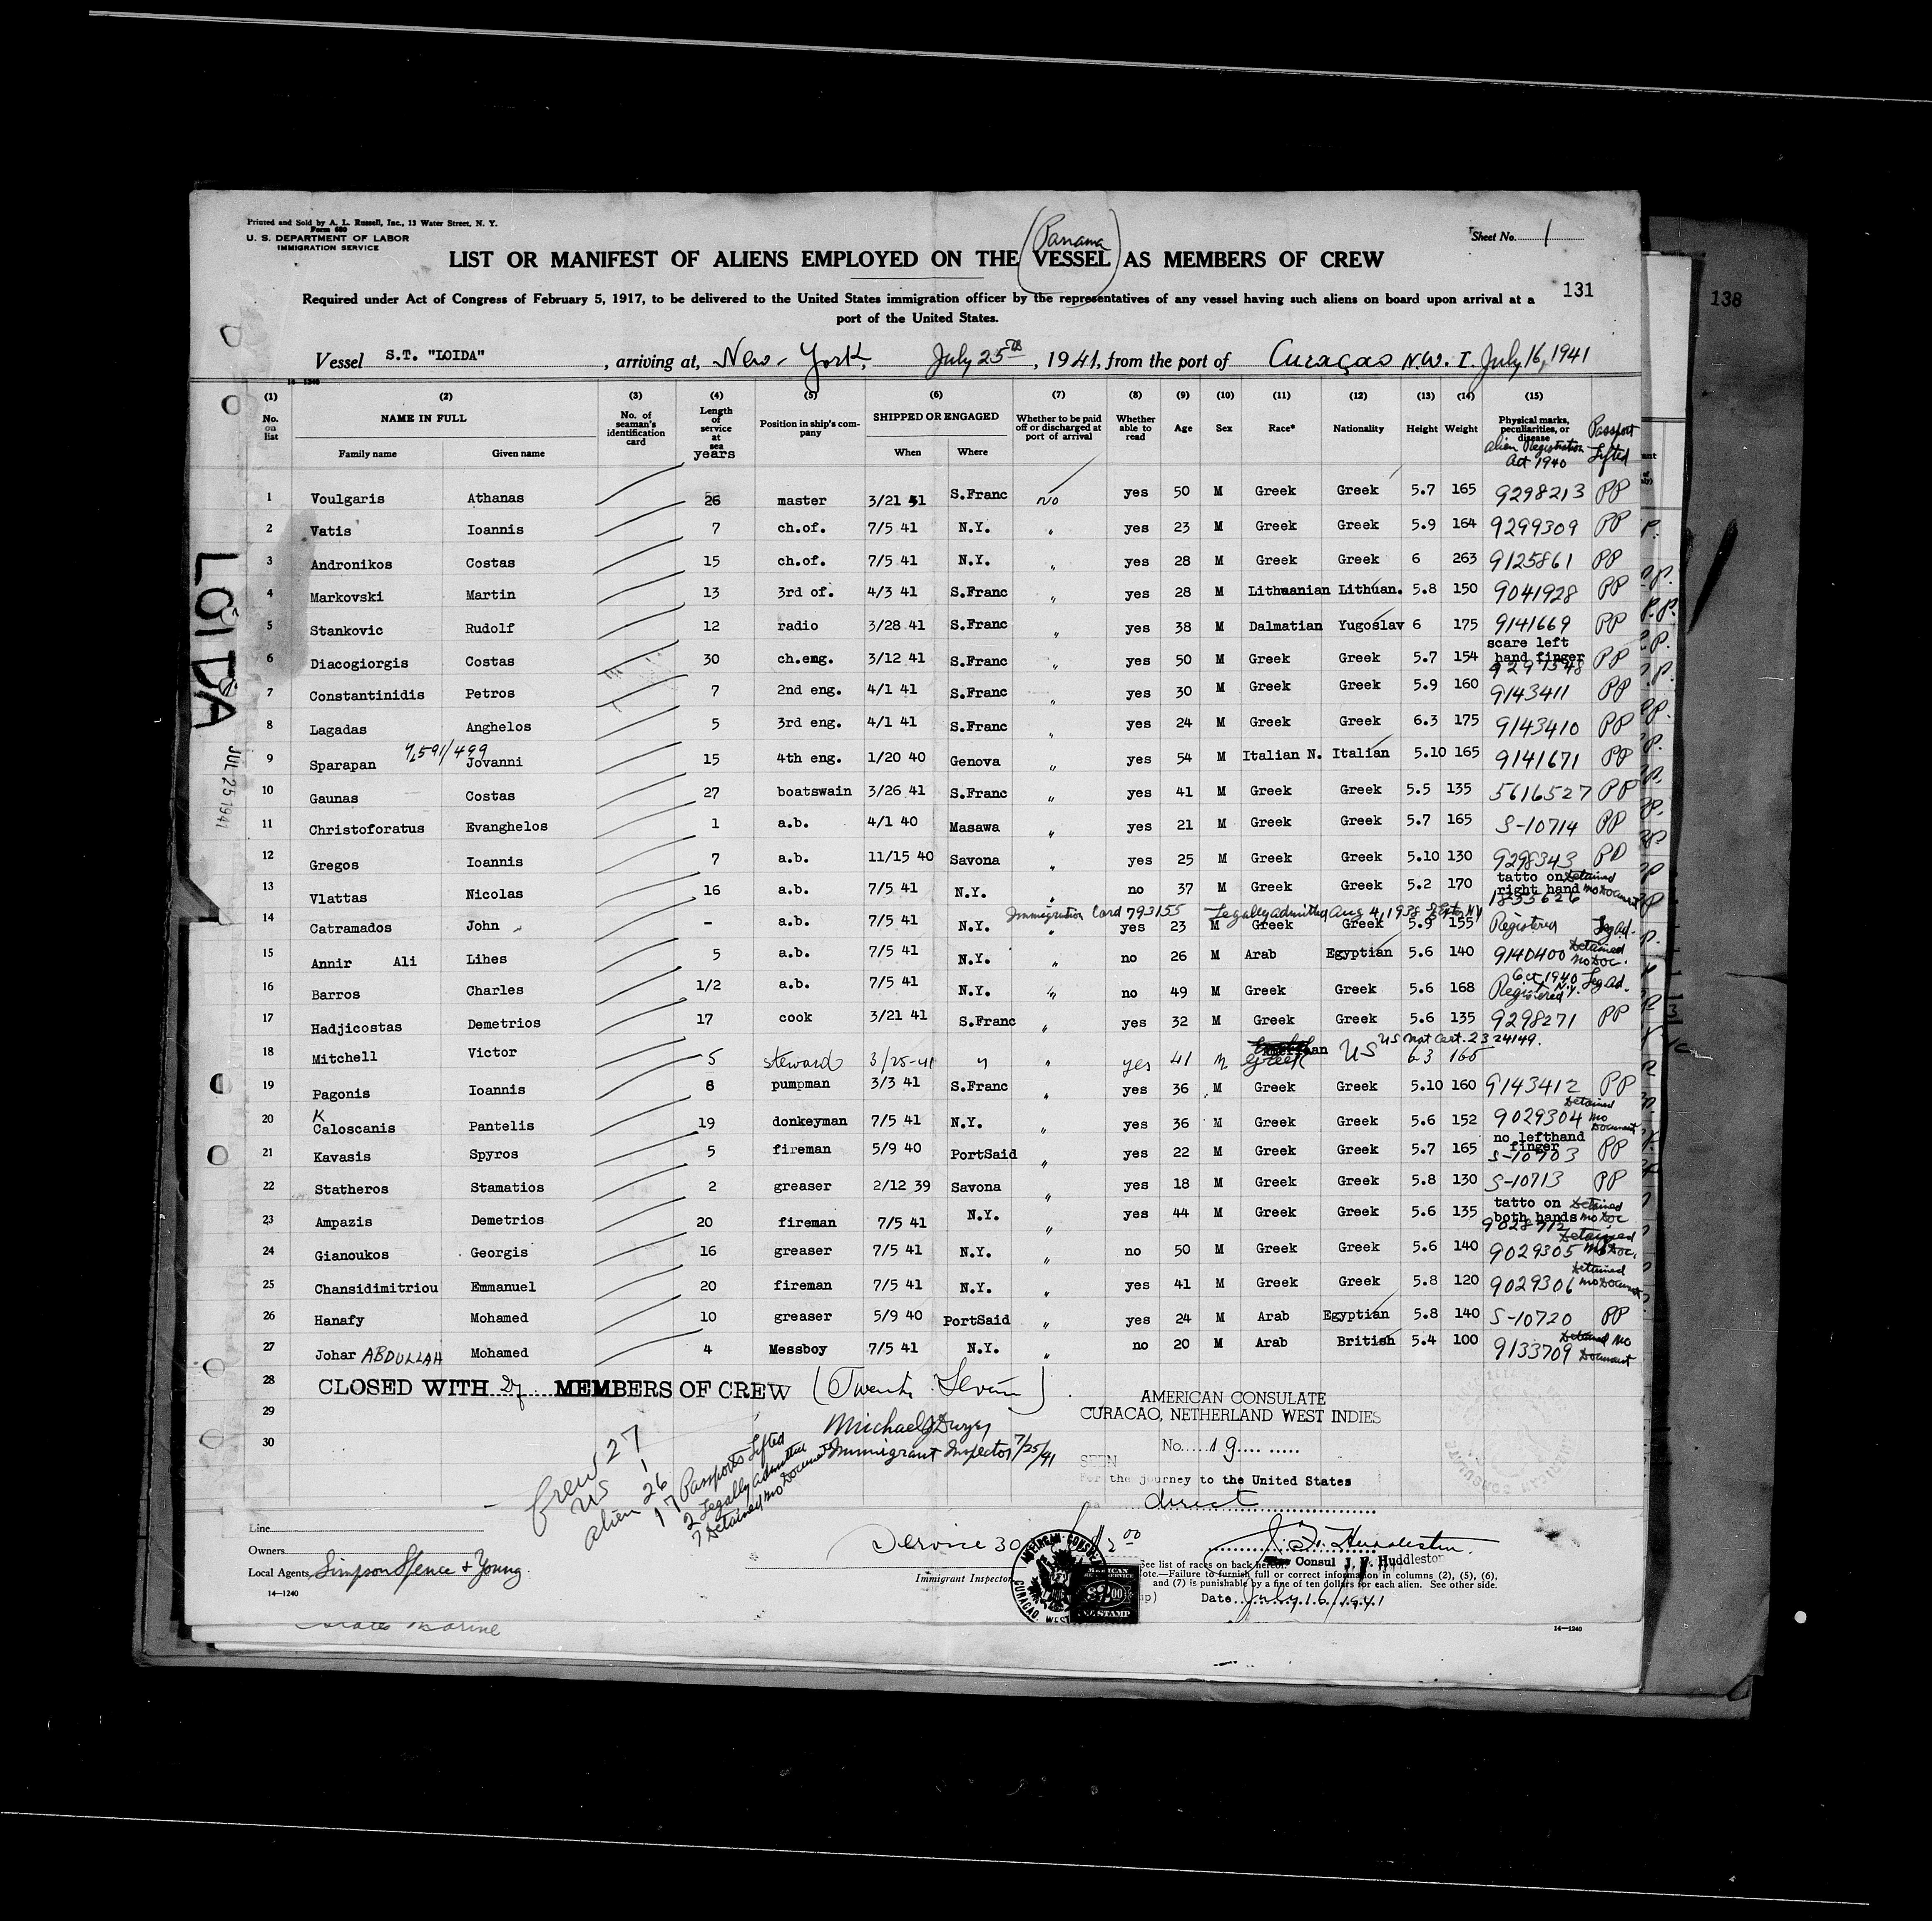 Printed and Sold by A. L. Russell, Inc., 13 Water Street, N. Y.
Form 680
U. S. DEPARTMENT OF LABOR
IMMIGRATION SERVICE
Sheet No. 1
(Panama)
LIST OR MANIFEST OF ALIENS EMPLOYED ON THE VESSEL AS MEMBERS OF CREW
131
138
Required under Act of Congress of February 5, 1917, to be delivered to the United States immigration officer by the representatives of any vessel having such aliens on board upon arrival at a
port of the United States.
Vessel S.T. "LOIDA", arriving at, New-York, July 25th, 1941, from the port of Curaçao N.W.I. July 16, 1941
14-1240
(1) No. on list
(2) NAME IN FULL Family name Given name
(3) No. of seaman's identification card
(4) Length of service at sea years
(5) Position in ship's company
(6) SHIPPED OR ENGAGED When Where
(7) Whether to be paid off or discharged at port of arrival
(8) Whether able to read
(9) Age
(10) Sex
(11) Race*
(12) Nationality
(13) Height
(14) Weight
(15) Physical marks, peculiarities, or disease
Alien Registration Act 1940
Passport Lifted
1 Voulgaris Athanas 26 master 3/21 41 S.Franc No yes 50 M Greek Greek 5.7 165 9298213 PP
2 Vatis Ioannis 7 ch.of. 7/5 41 N.Y. " yes 23 M Greek Greek 5.9 164 9299309 PP
3 Andronikos Costas 15 ch.of. 7/5 41 N.Y. " yes 28 M Greek Greek 6 263 9125861 PP
4 Markovski Martin 13 3rd of. 4/3 41 S.Franc " yes 28 M Lithuanian Lithuan. 5.8 150 9041928 PP
5 Stankovic Rudolf 12 radio 3/28 41 S.Franc " yes 38 M Dalmatian Yugoslav 6 175 9141669 PP
6 Diacogiorgis Costas 30 ch.eng. 3/12 41 S.Franc " yes 50 M Greek Greek 5.7 154 scare left hand finger 9297548 PP
7 Constantinidis Petros 7 2nd eng. 4/1 41 S.Franc " yes 30 M Greek Greek 5.9 160 9143411 PP
8 Lagadas Anghelos 5 3rd eng. 4/1 41 S.Franc " yes 24 M Greek Greek 6.3 175 9143410 PP
9 Sparapan 7591/499 Jovanni 15 4th eng. 1/20 40 Genova " yes 54 M Italian N. Italian 5.10 165 9141671 PP
10 Gaunas Costas 27 boatswain 3/26 41 S.Franc " yes 41 M Greek Greek 5.5 135 5616527 PP
11 Christoforatus Evanghelos 1 a.b. 4/1 40 Masawa " yes 21 M Greek Greek 5.7 165 S-10714 PP
12 Gregos Ioannis 7 a.b. 11/15 40 Savona " yes 25 M Greek Greek 5.10 130 9298343 PP
13 Vlattas Nicolas 16 a.b. 7/5 41 N.Y. " no 37 M Greek Greek 5.2 170 tatto on right hand 1835626 Detained no Document
Immigration Card 793155 Legally admitted Aug 4, 1938
14 Catramados John - a.b. 7/5 41 N.Y. " yes 23 M Greek Greek 5.9 155 Registered Leg Ad.
15 Annir Ali Lihes 5 a.b. 7/5 41 N.Y. " no 26 M Arab Egyptian 5.6 140 9140400 Detained no Doc.
16 Barros Charles 1/2 a.b. 7/5 41 N.Y. " no 49 M Greek Greek 5.6 168 Oct 1940 N.Y. Registered Leg Ad.
17 Hadjicostas Demetrios 17 cook 3/21 41 S.Franc " yes 32 M Greek Greek 5.6 135 9298271 PP
18 Mitchell Victor 5 steward 3/25-41 " " yes 41 M Greek US US Nat Cert. 2324149. 63 165
19 Pagonis Ioannis 8 pumpman 3/3 41 S.Franc " yes 36 M Greek Greek 5.10 160 9143412 PP
20 K Caloscanis Pantelis 19 donkeyman 7/5 41 N.Y. " yes 36 M Greek Greek 5.6 152 9029304 Detained no Document
21 Kavasis Spyros 5 fireman 5/9 40 PortSaid " yes 22 M Greek Greek 5.7 165 no lefthand finger S-10703 PP
22 Statheros Stamatios 2 greaser 2/12 39 Savona " yes 18 M Greek Greek 5.8 130 S-10713 PP
23 Ampazis Demetrios 20 fireman 7/5 41 N.Y. " yes 44 M Greek Greek 5.6 135 tatto on both hands 9028712 Detained no Doc
24 Gianoukos Georgis 16 greaser 7/5 41 N.Y. " no 50 M Greek Greek 5.6 140 9029305 Detained no Doc.
25 Chansidimitriou Emmanuel 20 fireman 7/5 41 N.Y. " yes 41 M Greek Greek 5.8 120 9029306 Detained no Document
26 Hanafy Mohamed 10 greaser 5/9 40 PortSaid " yes 24 M Arab Egyptian 5.8 140 S-10720 PP
27 Johar ABDULLAH Mohamed 4 Messboy 7/5 41 N.Y. " no 20 M Arab British 5.4 100 9133709 Detained no Document
28 CLOSED WITH 27 MEMBERS OF CREW (Twenty Seven)
29
30
Michael J Dwyer
Immigrant Inspector 7/25/41
AMERICAN CONSULATE
CURACAO, NETHERLAND WEST INDIES
No. 19
SEEN
For the journey to the United States
direct
Crew 27
US 1
alien 26
17 Passports Lifted
2 Legally admitted
7 Detained no Document
Line
Owners
Local Agents Simpson Spence & Young
14-1240
Service 30
$2.00
Immigrant Inspector
J. F. Huddleston
Consul J. F. Huddleston
See list of races on back hereof.
Note.—Failure to furnish full or correct information in columns (2), (5), (6),
and (7) is punishable by a fine of ten dollars for each alien. See other side.
Date July 16, 1941
AMERICAN CONSULATE
CURACAO, WEST
14-1240
LOIDA
JUL 25 1941
Marine